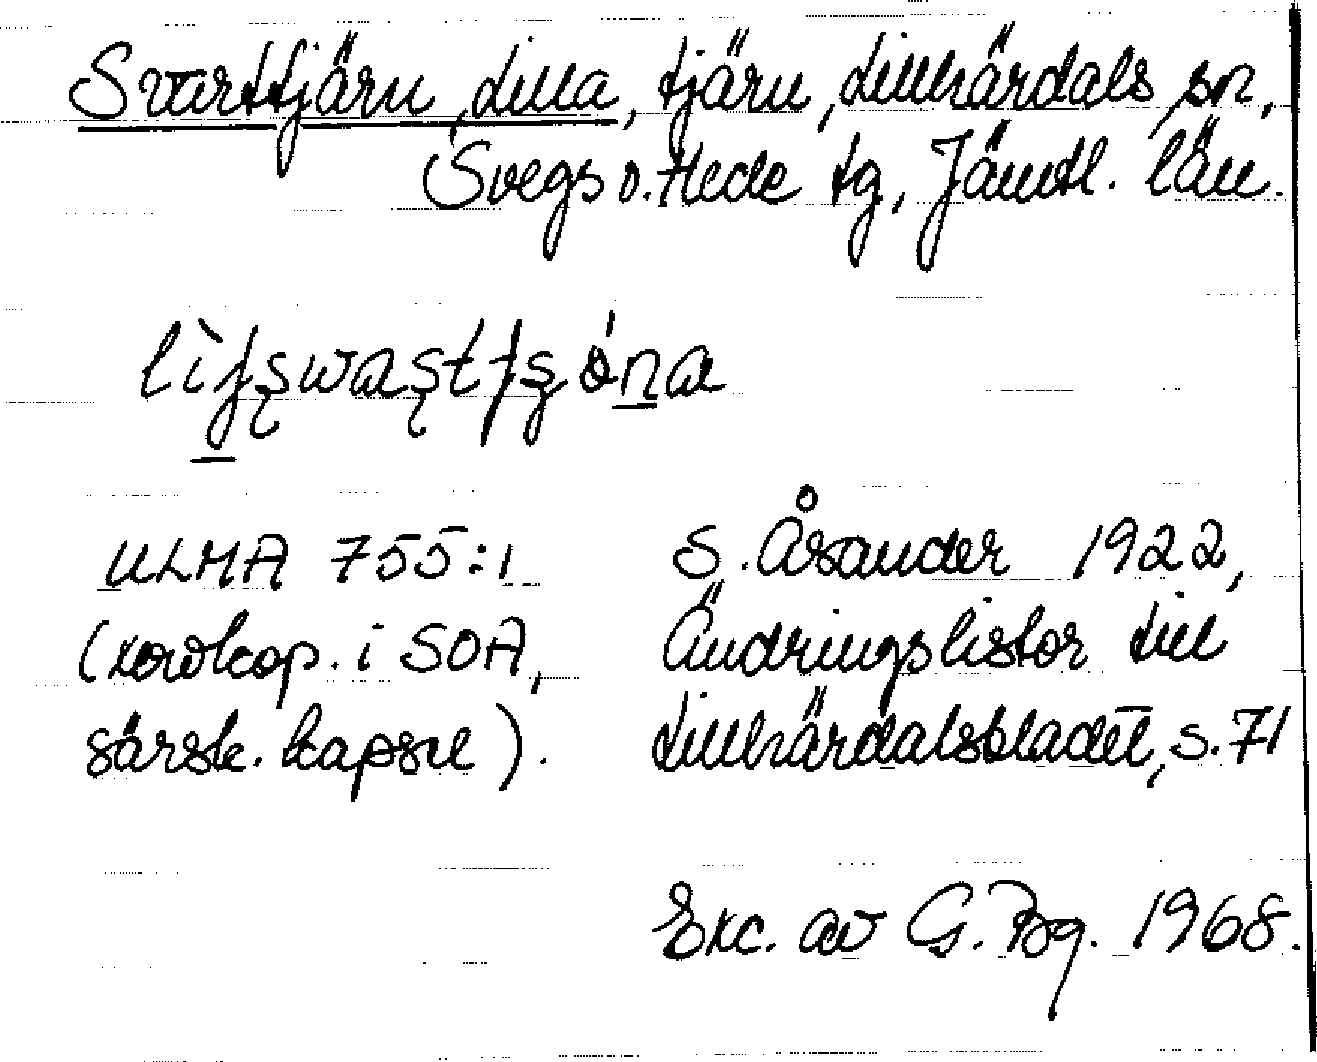 Svarttjärn, Lilla, tjärn, Lillhärdals sn,
Svegs o. Hede tg, Jämtl. län.
ULMA 755:1
(xeroxkop. i SOA,
särsk. kapsel).
S. Åsander 1922,
Ändringslistor till
Lillhärdalsbladet, s. 71
Exc. av G. Bg. 1968.